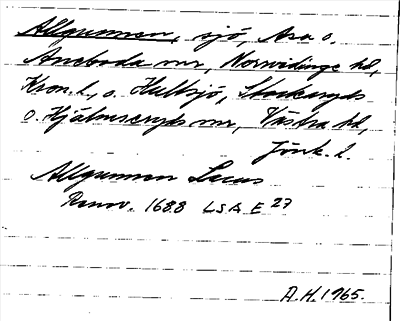 Allgunnen, sjö, Asa o.
Aneboda snr, Norvidinge hd,
Kron. l., o. Hultsjö, Stockaryds
o. Hjälmseryds snr, Västra hd,
Jönk. l.
Allgunnen Lacus
Rannv. 1688 LSA E 27
A.H. 1965.